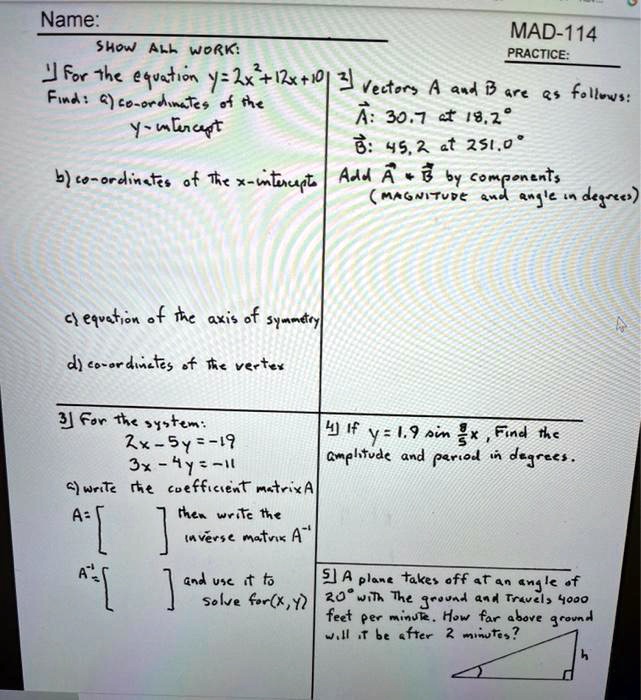 Name:
MAD-114
PRACTICE:
SHOW ALL WORK:
1) For the equation y=2x²+12x+10
Find: a) co-ordinates of the
y-intercept
b) co-ordinates of the x-intercepts
c) equation of the axis of symmetry
d) co-ordinates of the vertex
2) Vectors A and B are as follows:
A⃗: 30.7 at 18.2°
B⃗: 45.2 at 251.0°
Add A⃗ + B⃗ by components
(MAGNITUDE and angle in degrees)
3) For the system:
2x-5y=-19
3x-4y=-11
a) write the coefficient matrix A
A=[ ] then write the
inverse matrix A⁻¹
A⁻¹=[ ] and use it to
solve for(x,y)
4) If y=1.9 sin 8/5 x, Find the
amplitude and period in degrees.
5) A plane takes off at an angle of
20° with the ground and travels 4000
feet per minute. How far above ground
will it be after 2 minutes?
h